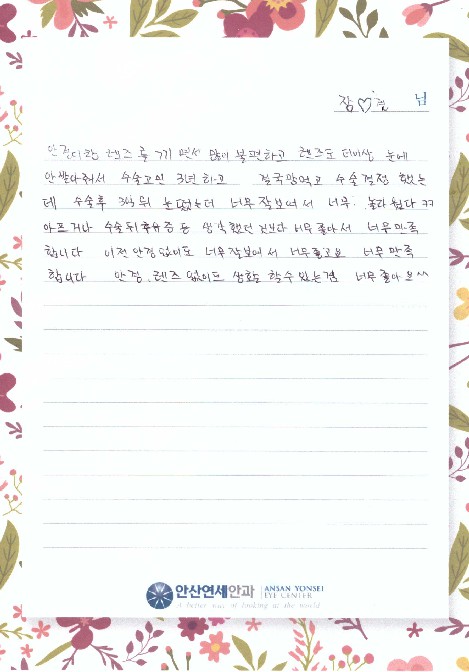 장♡른 님
안경이랑 렌즈를 끼기 면서 많이 불편하고 렌즈도 더이상 눈에
안받다줘서 수술고민 3년하고 결국 맘먹고 수술결정 했는
데 수술후 3시간뒤 눈떴는데 너무 잘보여서 너무 놀라웠다 ㅋㅋ
아프거나 수술뒤후유증 등 생각했던 것보다 너무 좋아서 너무만족
합니다 이젠 안경 없이도 너무 잘보여서 너무좋고요 너무 만족
합니다 안경, 렌즈 없이도 생활을 할수 있는점 너무 좋아요^^
안산연세안과 ANSAN YONSEI
EYE CENTER
A better way of looking at the world